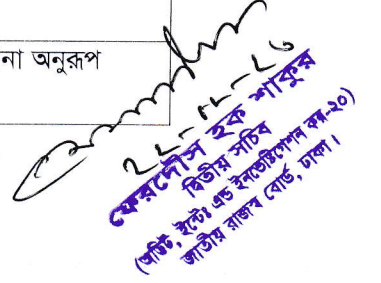 না অনুরূপ
ফেরদৌস হক শাকুর
দ্বিতীয় সচিব
(অডিট, ইন্টেঃ এন্ড ইনভেষ্টিগেশন কম-২০)
জাতীয় রাজস্ব বোর্ড, ঢাকা।